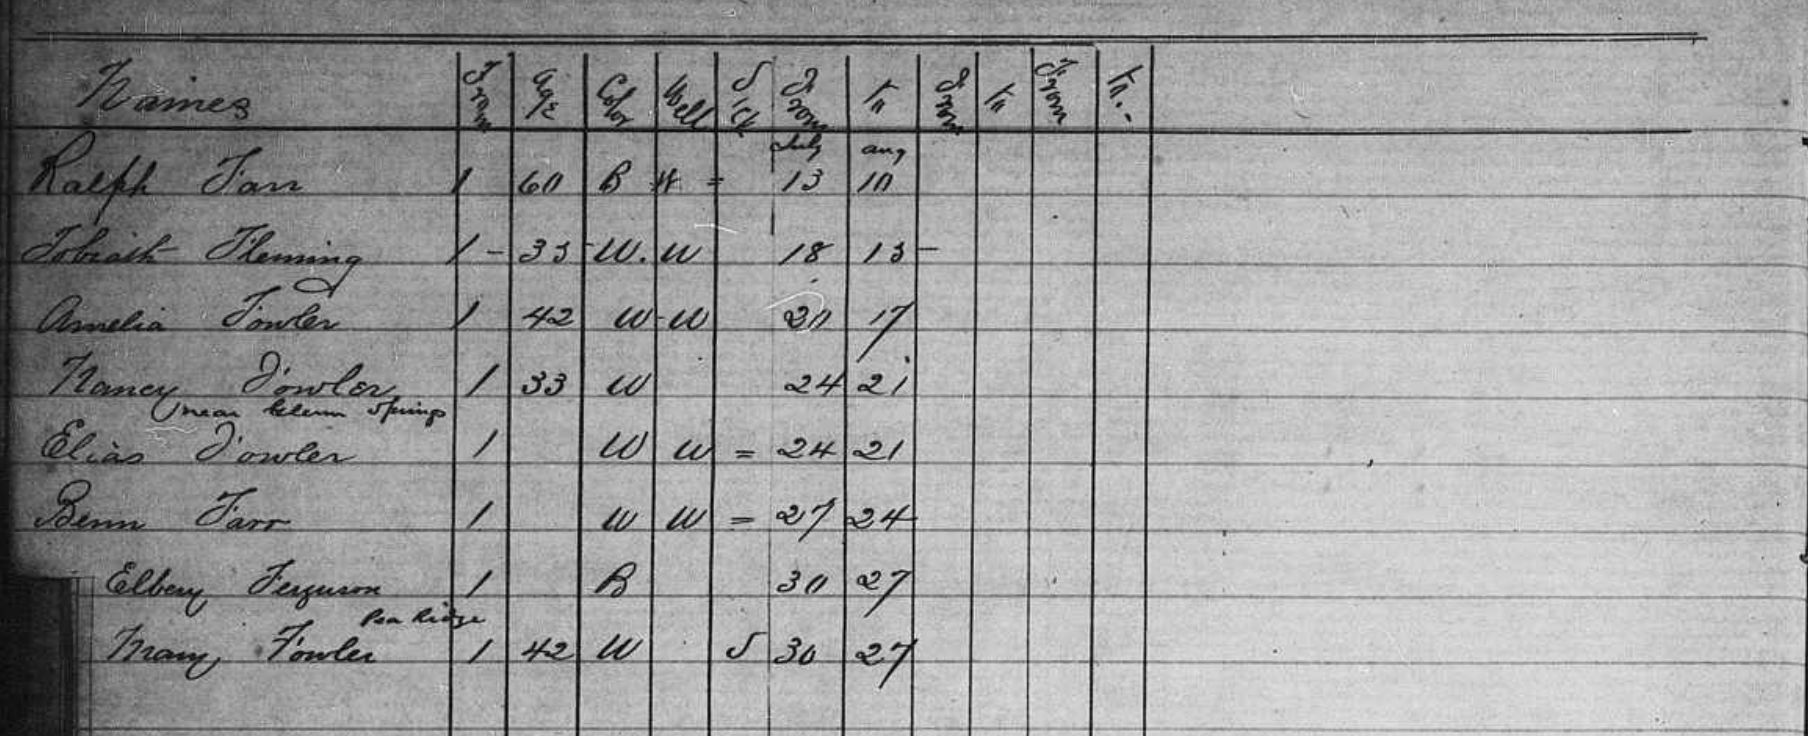 Names From Age Color Well Sick From To From To From To
July Aug
Ralph Farr 1 60 B W = 13 10
Fleming 1 - 33 W. W 18 13 -
Amelia Fowler 1 42 W - W 20 17
Nancy Fowler 1 33 W 24 21
near Glenn Springs
Elias Fowler 1 W W = 24 21
Benn Farr 1 W W = 27 24
Elbery Ferguson 1 B 30 27
Pea Ridge
Mary Fowler 1 42 W S 30 27